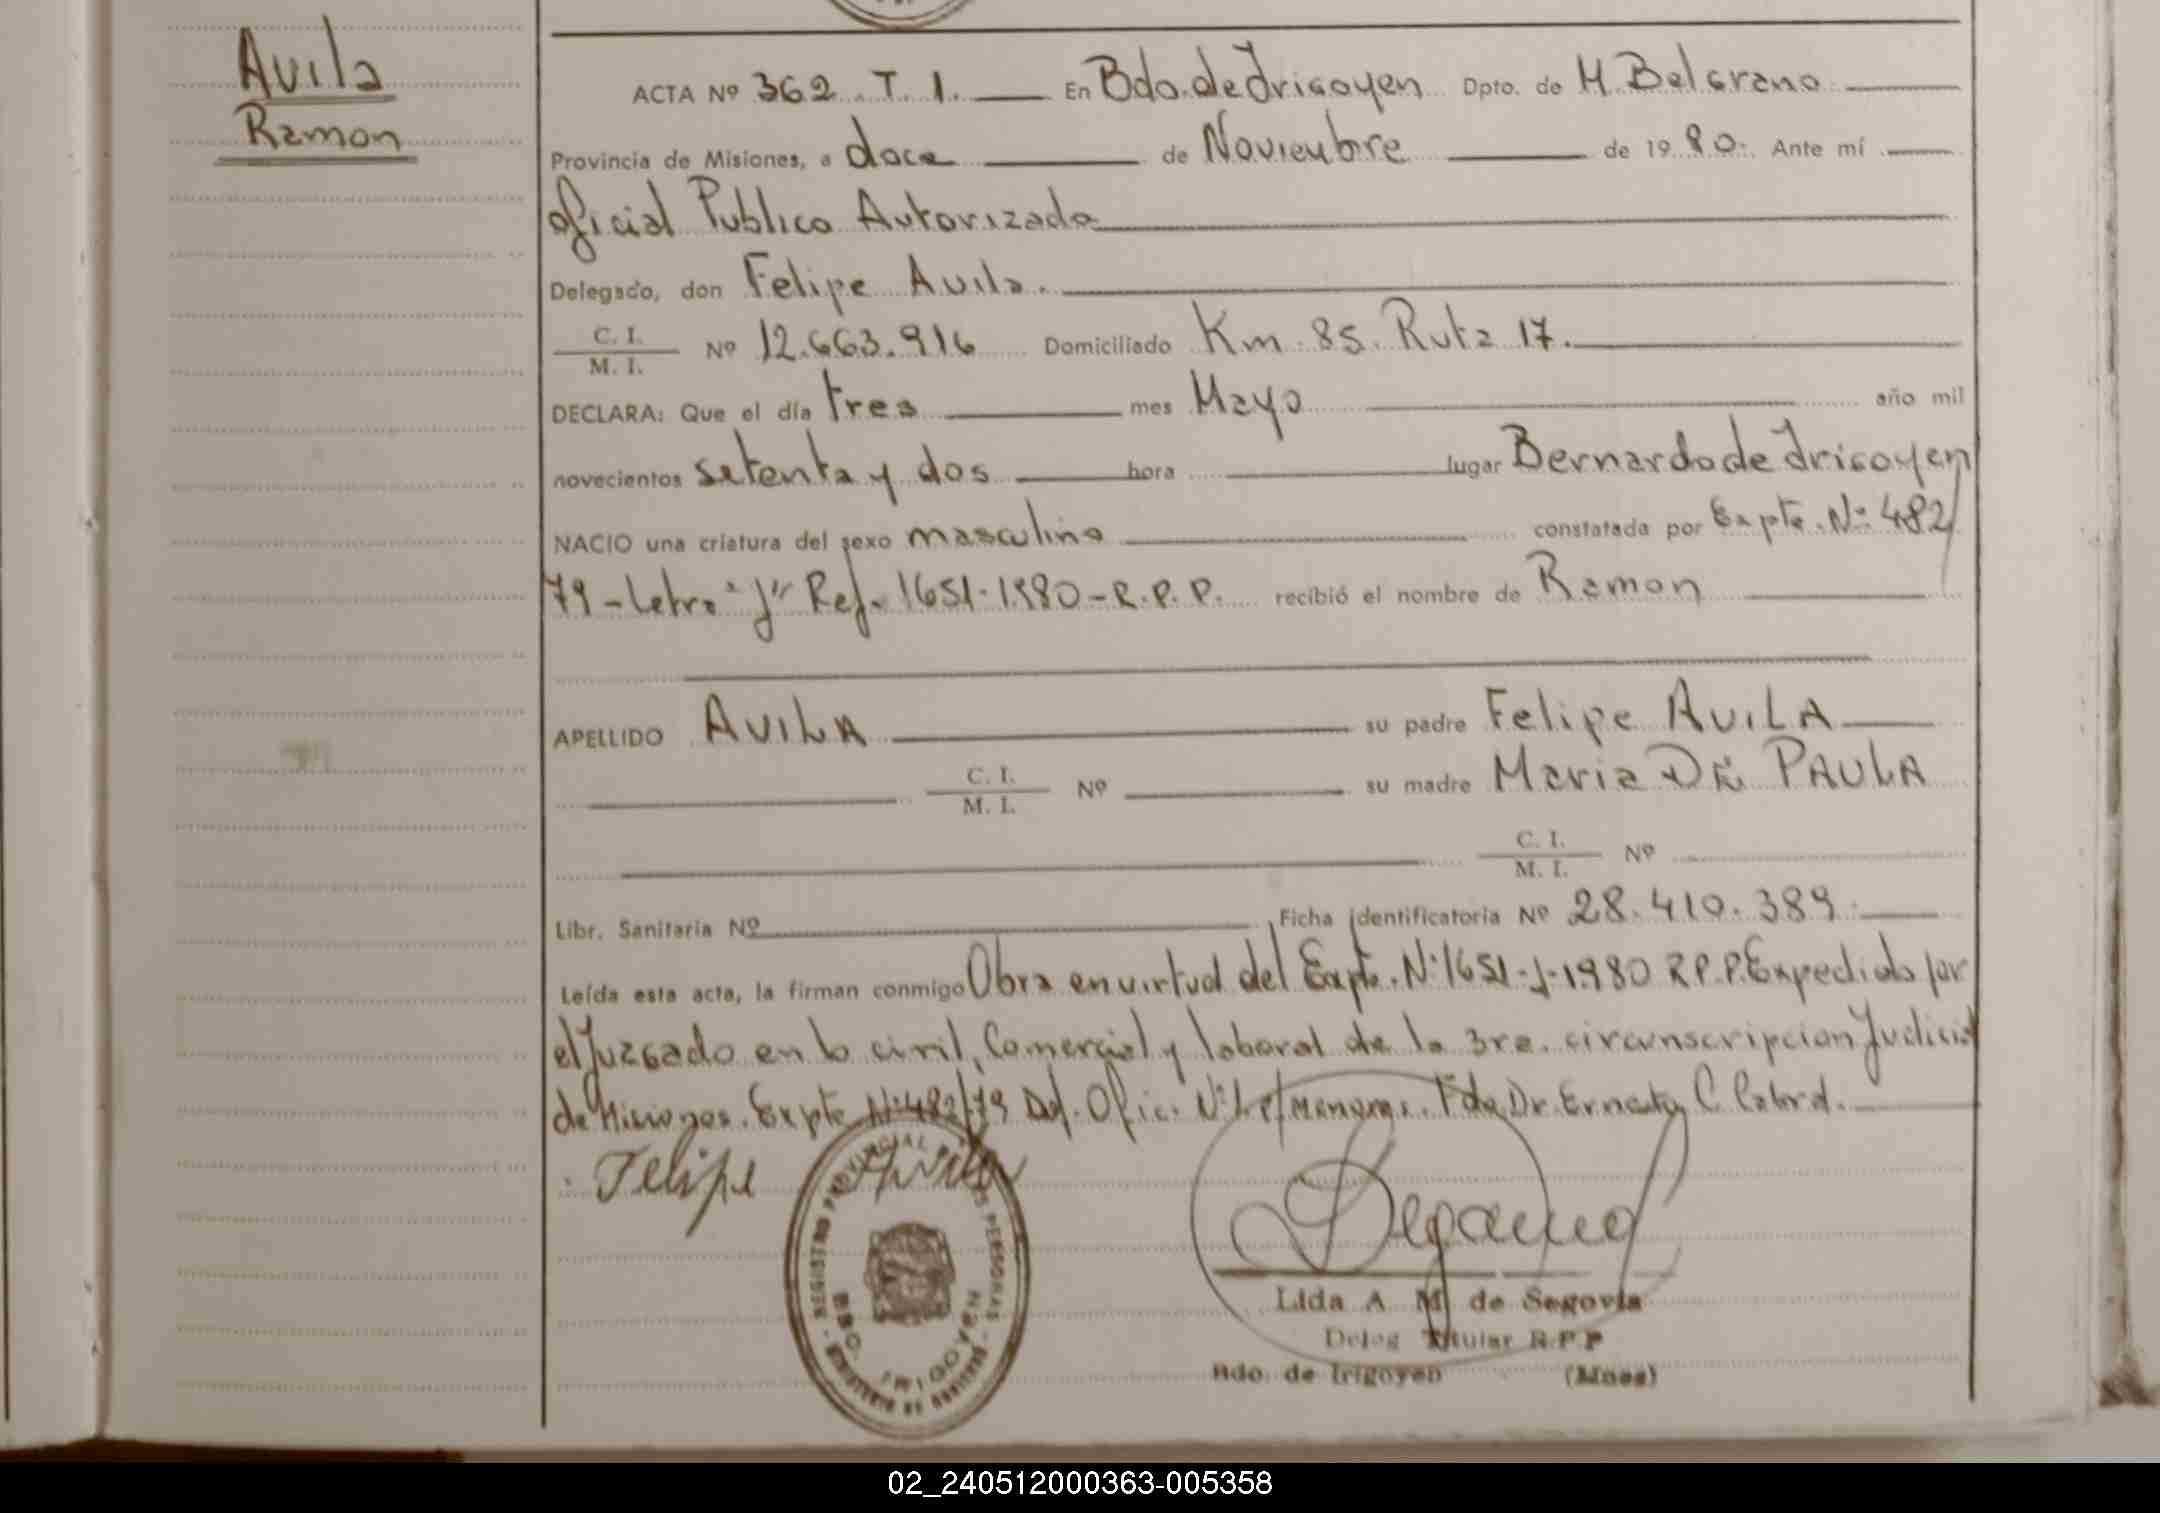 Avila
Ramon
ACTA Nº 362 T. 1. En Bdo. de Irigoyen Dpto. de M. Belgrano
Provincia de Misiones, a doce de Noviembre de 1980. Ante mí
oficial Publico Autorizado
Delegado, don Felipe Avila.
C. I.
M. I. Nº 12.663.916 Domiciliado Km 85. Ruta 17.
DECLARA: Que el día tres mes Mayo año mil
novecientos setenta y dos hora lugar Bernardo de Irigoyen
NACIO una criatura del sexo masculino constatada por Expte. Nº 482/
79 - Letra "J" Ref. 1651-1980 - R.P.P. recibió el nombre de Ramon
APELLIDO AVILA su padre Felipe AVILA
C. I.
M. I. Nº su madre Maria DE PAULA
C. I.
M. I. Nº
Libr. Sanitaria Nº Ficha identificatoria Nº 28.410.389
Leída esta acta, la firman conmigo Obra en virtud del Expte. Nº 1651-J-1980 R.P.P. Expedido por
el Juzgado en lo civil, Comercial y laboral de la 3ra. circunscripcion Judicial
de Misiones. Expte Nº 482/79 Def. Ofic. Nº 1 Dr. Ernesto C.
Felipe Avila
REGISTRO PROVINCIAL DE LAS PERSONAS
BDO. IRIGOYEN
MINISTERIO DE
Lida A. M. de Segovia
Deleg Titular R.P.P
Bdo. de Irigoyen (Mnes)
02_240512000363-005358